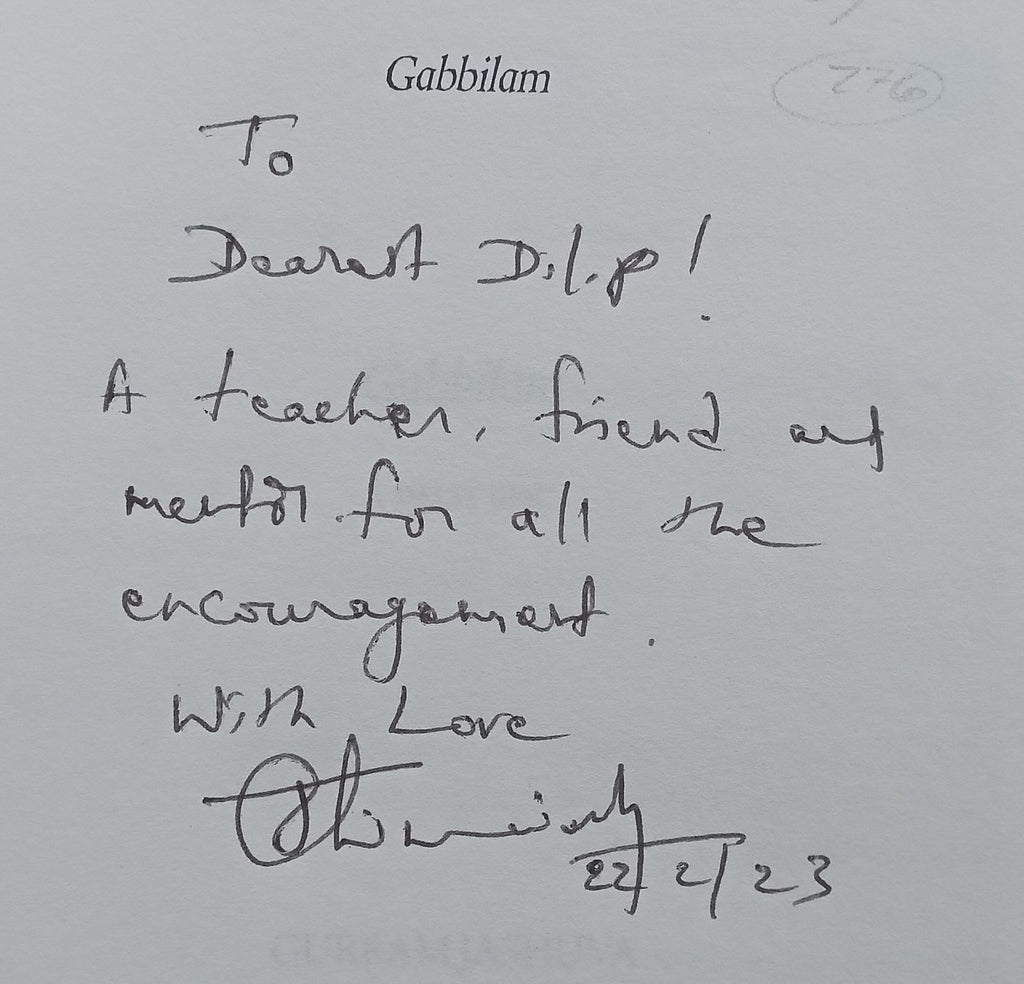 Gabbilam
276
To
Dearest Dilip!
A teacher, friend and
mentor for all the
encouragement.
With Love
22/2/23